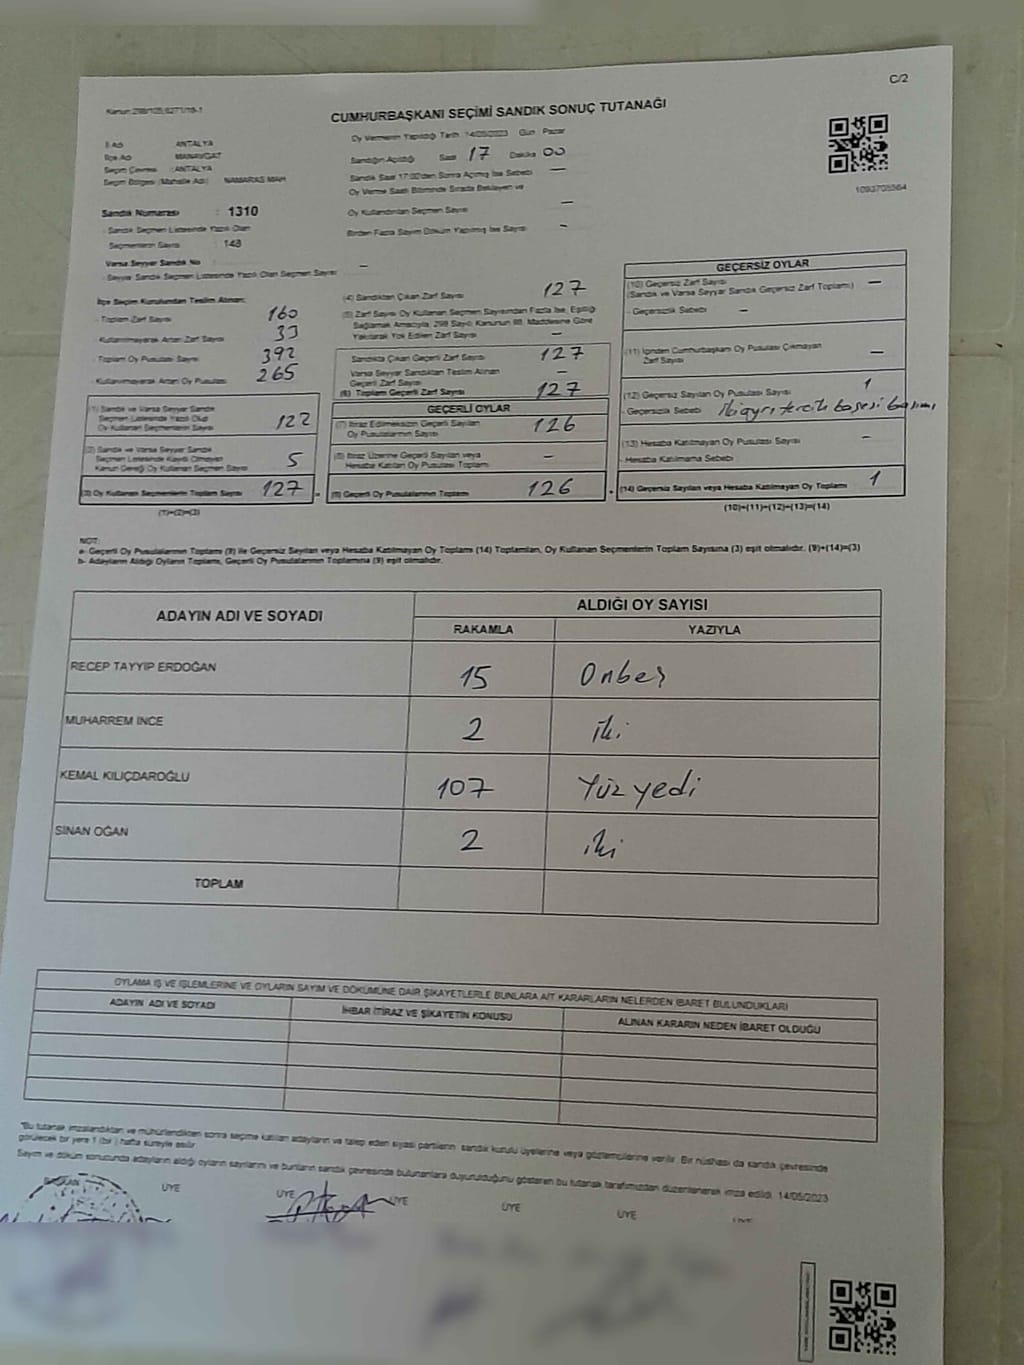 C/2
Kanun:298/105,6271/16-1
CUMHURBAŞKANI SEÇİMİ SANDIK SONUÇ TUTANAĞI
İl Adı : ANTALYA
İlçe Adı : MANAVGAT
Seçim Çevresi : ANTALYA
Seçim Bölgesi (Mahalle Adı) : NAMARAS MAH
Sandık Numarası : 1310
- Sandık Seçmen Listesinde Yazılı Olan
Seçmenlerin Sayısı : 148
Varsa Seyyar Sandık No
- Seyyar Sandık Seçmen Listesinde Yazılı Olan Seçmen Sayısı —
Oy Vermenin Yapıldığı Tarih : 14/05/2023 Gün : Pazar
Sandığın Açıldığı Saat 17 Dakika 00
Sandık Saat 17:00'den Sonra Açılmış İse Sebebi —
Oy Verme Saati Bitiminde Sırada Bekleyen ve
Oy Kullandırılan Seçmen Sayısı —
Birden Fazla Sayım Döküm Yapılmış İse Sayısı —
1093705564
İlçe Seçim Kurulundan Teslim Alınan:
- Toplam Zarf Sayısı 160
- Kullanılmayarak Artan Zarf Sayısı 33
- Toplam Oy Pusulası Sayısı 392
- Kullanılmayarak Artan Oy Pusulası 265
(1) Sandık ve Varsa Seyyar Sandık
Seçmen Listesinde Yazılı Olup
Oy Kullanan Seçmenlerin Sayısı 122
(2) Sandık ve Varsa Seyyar Sandık
Seçmen Listesinde Kayıtlı Olmayan
Kanun Gereği Oy Kullanan Seçmen Sayısı 5
(3) Oy Kullanan Seçmenlerin Toplam Sayısı 127
(1)+(2)=(3)
(4) Sandıktan Çıkan Zarf Sayısı 127
(5) Zarf Sayısı Oy Kullanan Seçmen Sayısından Fazla İse, Eşitliği
Sağlamak Amacıyla, 298 Sayılı Kanunun 98. Maddesine Göre
Yakılarak Yok Edilen Zarf Sayısı —
Sandıkta Çıkan Geçerli Zarf Sayısı 127
Varsa Seyyar Sandıktan Teslim Alınan
Geçerli Zarf Sayısı —
(6) Toplam Geçerli Zarf Sayısı 127
GEÇERLİ OYLAR
(7) İtiraz Edilmeksizin Geçerli Sayılan
Oy Pusulalarının Sayısı 126
(8) İtiraz Üzerine Geçerli Sayılan veya
Hesaba Katılan Oy Pusulası Toplamı —
(9) Geçerli Oy Pusulalarının Toplamı 126
GEÇERSİZ OYLAR
(10) Geçersiz Zarf Sayısı —
(Sandık ve Varsa Seyyar Sandık Geçersiz Zarf Toplamı)
- Geçersizlik Sebebi : —
(11) İçinden Cumhurbaşkanı Oy Pusulası Çıkmayan
Zarf Sayısı —
(12) Geçersiz Sayılan Oy Pusulası Sayısı 1
- Geçersizlik Sebebi : İki ayrı tercih
(13) Hesaba Katılmayan Oy Pusulası Sayısı —
- Hesaba Katılmama Sebebi :
(14) Geçersiz Sayılan veya Hesaba Katılmayan Oy Toplamı 1
(10)+(11)+(12)+(13)=(14)
NOT:
a- Geçerli Oy Pusulalarının Toplamı (9) ile Geçersiz Sayılan veya Hesaba Katılmayan Oy Toplamı (14) Toplamları, Oy Kullanan Seçmenlerin Toplam Sayısına (3) eşit olmalıdır. (9)+(14)=(3)
b- Adayların Aldığı Oyların Toplamı, Geçerli Oy Pusulalarının Toplamına (9) eşit olmalıdır.
ADAYIN ADI VE SOYADI ALDIĞI OY SAYISI
RAKAMLA YAZIYLA
RECEP TAYYİP ERDOĞAN 15 Onbeş
MUHARREM İNCE 2 iki
KEMAL KILIÇDAROĞLU 107 Yüz yedi
SİNAN OĞAN 2 iki
TOPLAM
OYLAMA İŞ VE İŞLEMLERİNE VE OYLARIN SAYIM VE DÖKÜMÜNE DAİR ŞİKAYETLERLE BUNLARA AİT KARARLARIN NELERDEN İBARET BULUNDUKLARI
ADAYIN ADI VE SOYADI İHBAR İTİRAZ VE ŞİKAYETİN KONUSU ALINAN KARARIN NEDEN İBARET OLDUĞU
*Bu tutanak imzalandıktan ve mühürlendikten sonra seçime katılan adayların ve talep eden siyasi partilerin sandık kurulu üyelerine veya gözlemcilerine verilir. Bir nüshası da sandık çevresinde
görülecek bir yere 1 (bir) hafta süreyle asılır.
Sayım ve döküm sonucunda adayların aldığı oyların sayılarını ve bunların sandık çevresinde bulunanlara duyurulduğunu gösteren bu tutanak tarafımızdan düzenlenerek imza edildi. 14/05/2023
BAŞKAN ÜYE ÜYE ÜYE ÜYE ÜYE ÜYE